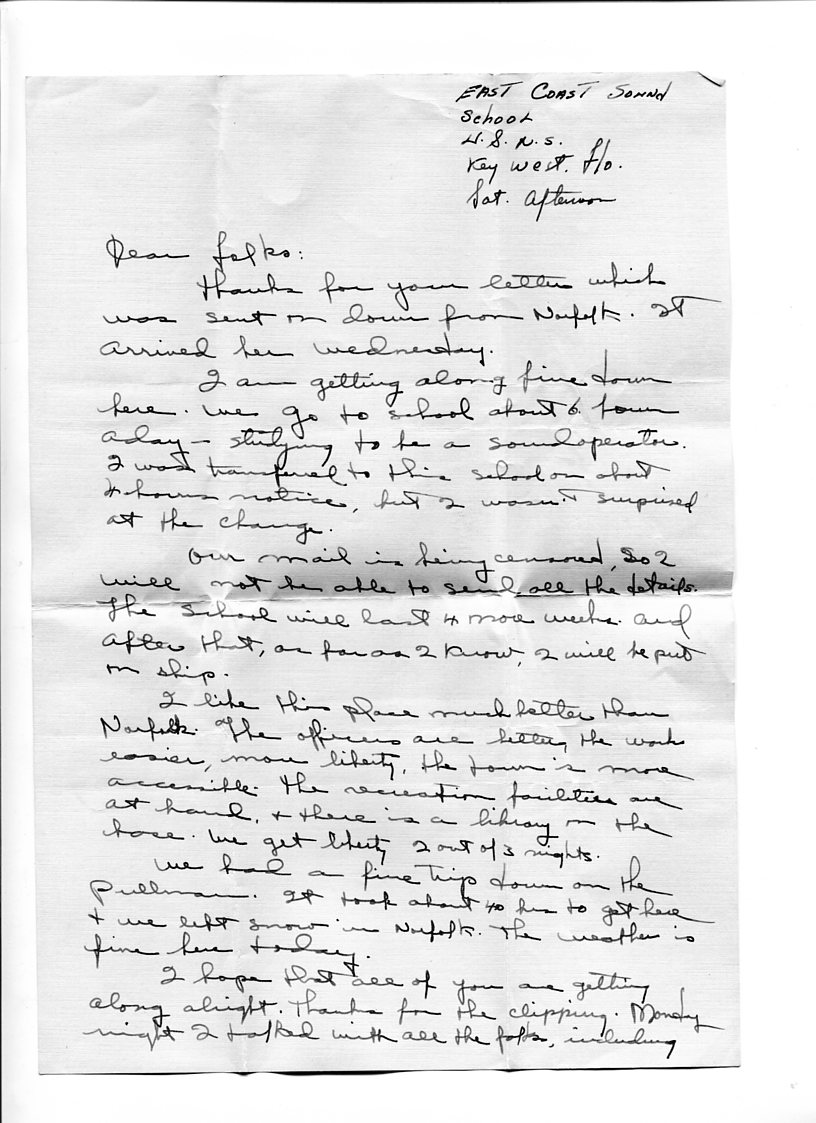 EAST COAST SOUND
School
U.S.N.S.
Key West. Fla.
Sat. Afternoon
Dear folks:
Thanks for your letter which
was sent on down from Norfolk. It
arrived her Wednesday.
I am getting along fine down
here. We go to school about 6 hours
aday - studying to be a sound operator.
I was transfered to this school on about
4 hours notice, but I wasn't surprised
at the change.
Our mail is being censored, so I
will not be able to send all the details.
The school will last 4 more weeks and
after that, as far as I know, I will be put
on ship.
I like this place much better than
Norfolk. The officers are better, the work
easier, more liberty, the town is more
accessible. The recreation facilities are
at hand, + there is a library on the
base. We get liberty 2 out of 3 nights.
We had a fine trip down on the
Pullman. It took about 40 hrs to get here
+ we left snow in Norfolk. The weather is
fine here today.
I hope that all of you are getting
along alright. Thanks for the clipping. Monday
night I talked with all the folks, including